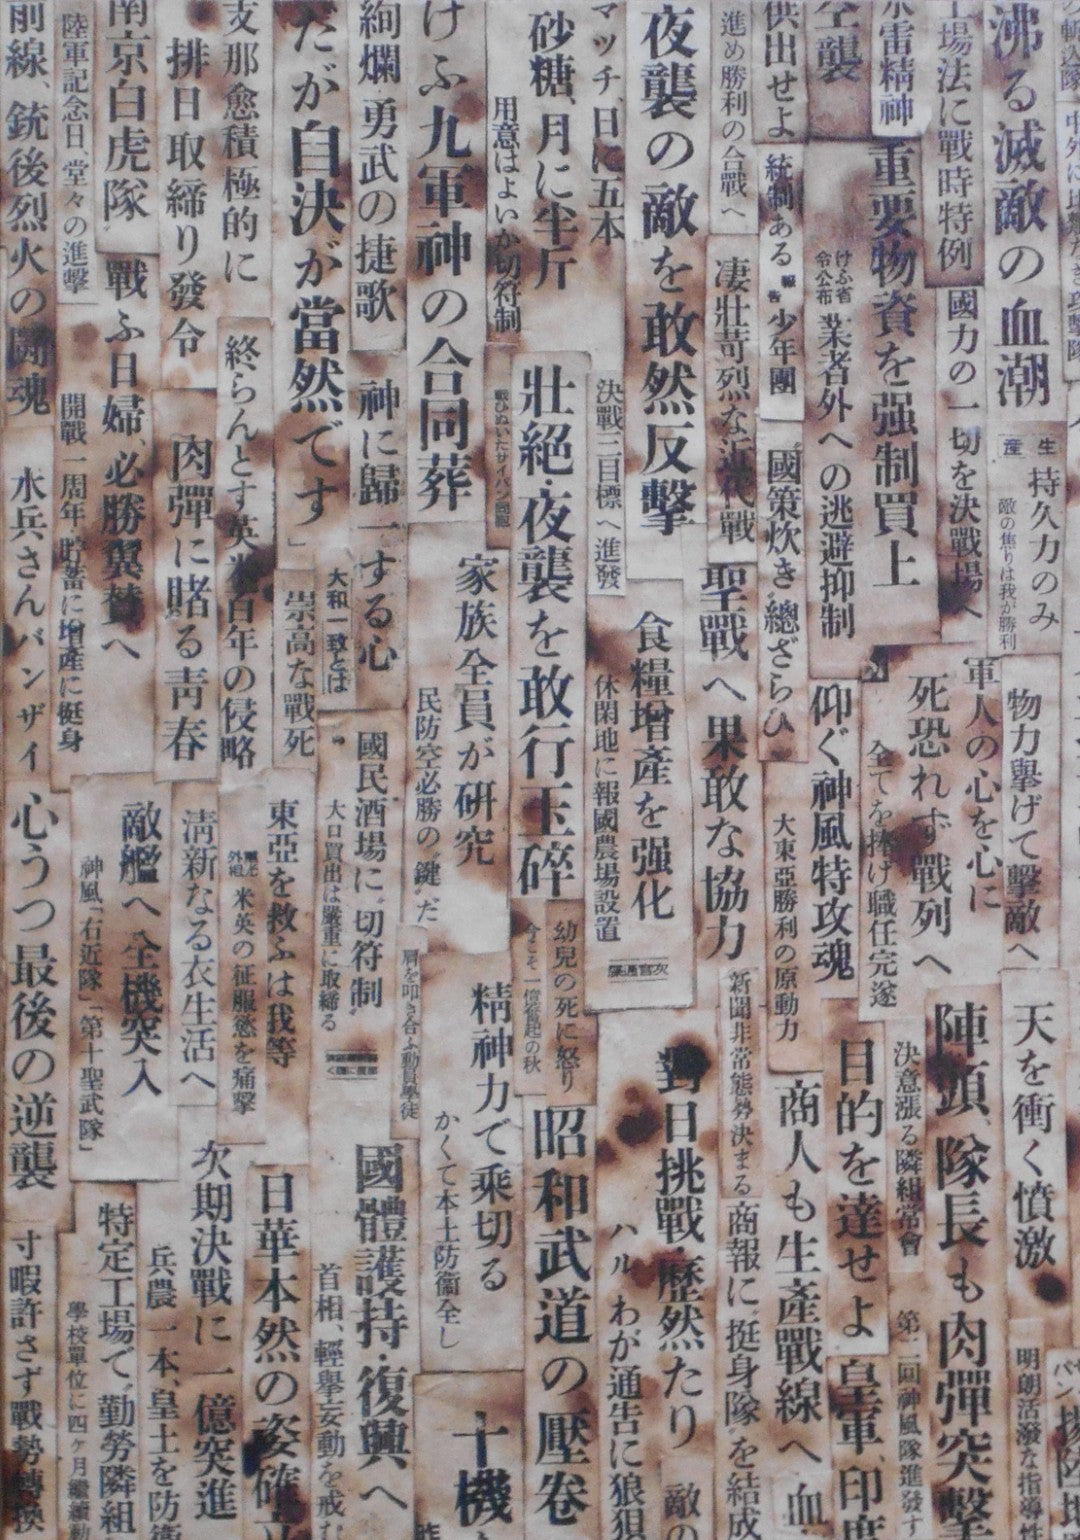 沸る滅敵の血潮
生産
持久力のみ
敵の焦りは我が勝利
物力擧げて擊敵へ
天を衝く憤激
明朗活潑な指導性
工場法に戰時特例
國力の一切を決戰場へ
軍人の心を心に
死恐れず戰列へ
陣頭、隊長も肉彈突擊
水雷精神
重要物資を强制買上
全てを捧げ職任完遂
決意漲る隣組常會
第二回神風隊進發す
空襲
けふ省令公布
業者外への逃避抑制
仰ぐ神風特攻魂
目的を達せよ
皇軍、印度
供出せよ
統制ある
報告
少年團
國策炊き總ざらひ
大東亞勝利の原動力
商人も生產戰線へ
血
進め勝利の合戰へ
凄壯苛烈な近代戰
聖戰へ果敢な協力
新聞非常態勢決まる
商報に挺身隊を結成
夜襲の敵を敢然反擊
食糧增產を强化
休閑地に報國農場設置
對日挑戰・歷然たり
敵の
マッチ、日に五本
砂糖、月に半斤
用意はよいか切符制
決戰三目標へ進發
壯絕・夜襲を敢行玉碎
幼兒の死に怒り
昭和武道の壓卷
ハルわが通告に狼狽
けふ九軍神の合同葬
家族全員が研究
民防空必勝の〝鍵〟だ
精神力で乘切る
かくて本土防衞全し
十機
絢爛・勇武の捷歌
神に歸一する心
大和一致とは
國民酒場に〝切符制〟
大口買出は嚴重に取締る
肩を叩き合ふ動員學徒
國體護持・復興へ
首相、輕擧妄動を戒む
だが自決が當然です」
崇高な戰死
東亞を救ふは我等
米英の征服慾を痛擊
日華本然の姿確立
支那愈積極的に
排日取締り發令
終らんとす英米百年の侵略
肉彈に賭る靑春
淸新なる衣生活へ
次期決戰に一億突進
南京白虎隊
戰ふ日婦、必勝翼贊へ
敵艦へ全機突入
神風「右近隊」「第十聖武隊」
特定工場で〝勤勞隣組
兵農一本、皇土を防衞
學校單位に四ヶ月繼續動
陸軍記念日、堂々の進擊
開戰一周年・貯蓄に增產に挺身
前線、銃後烈火の鬪魂
水兵さんバンザイ
心うつ最後の逆襲
寸暇許さず戰勢轉換